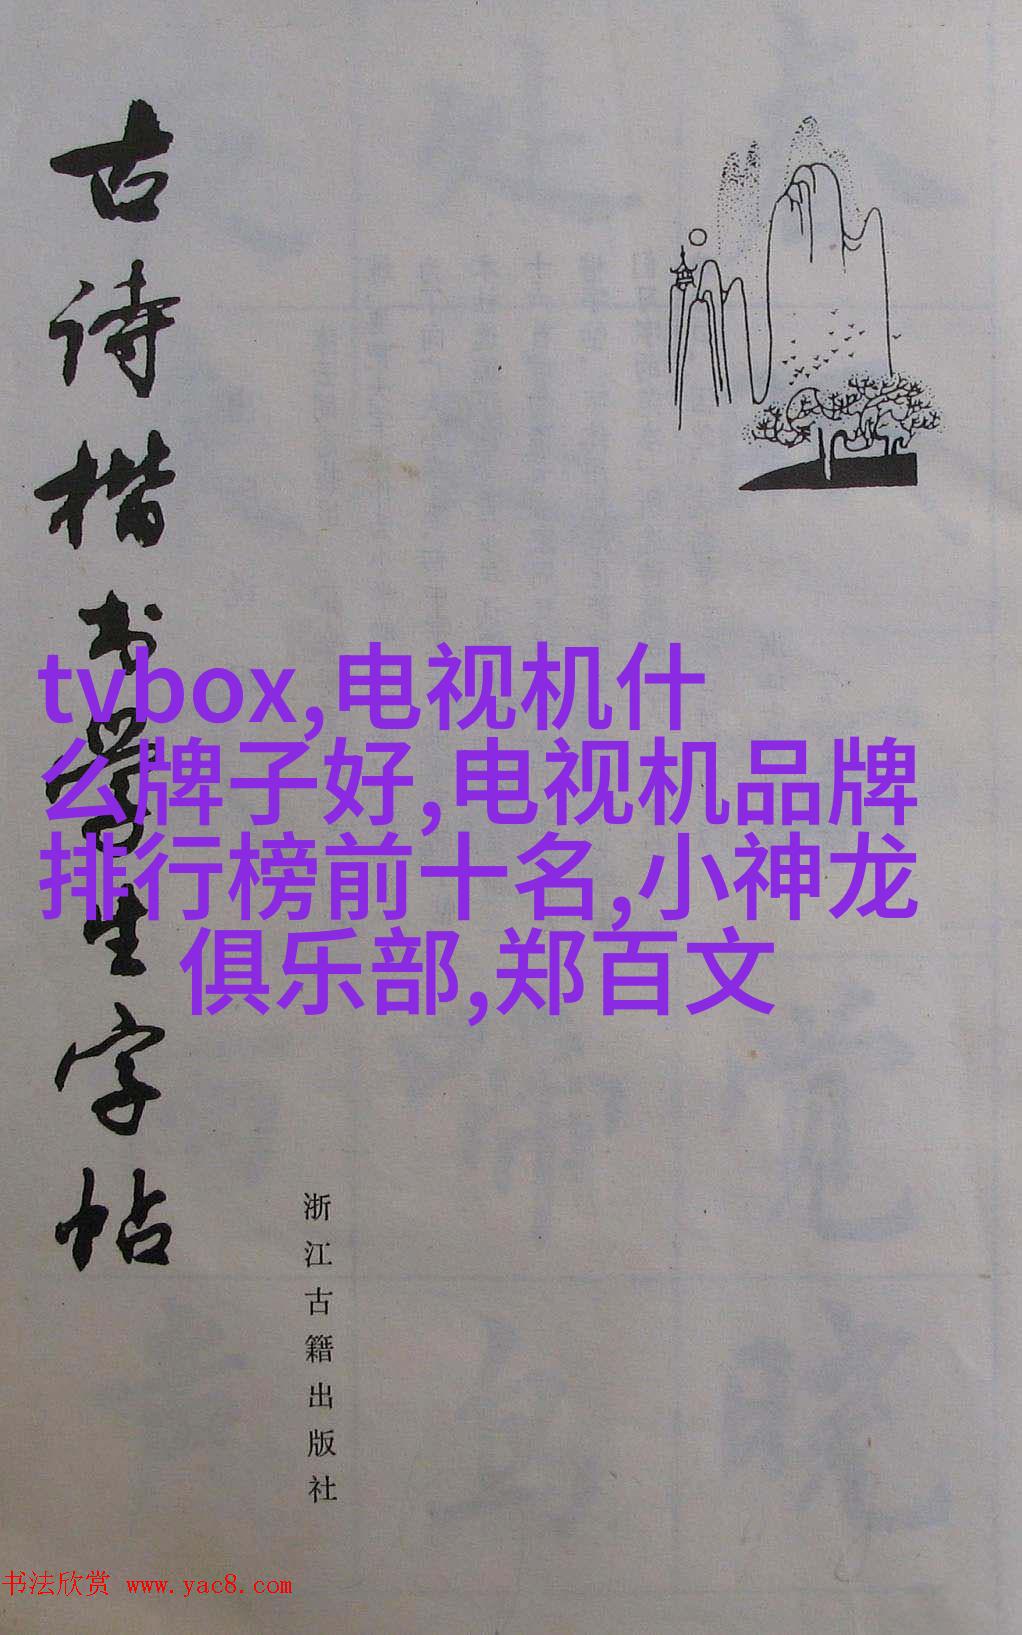 古诗楷书学生字帖
tvbox,电视机什
么牌子好,电视机品牌
排行榜前十名,小神龙
俱乐部,郑百文
浙江古籍出版社
书法欣赏 www.yac8.com